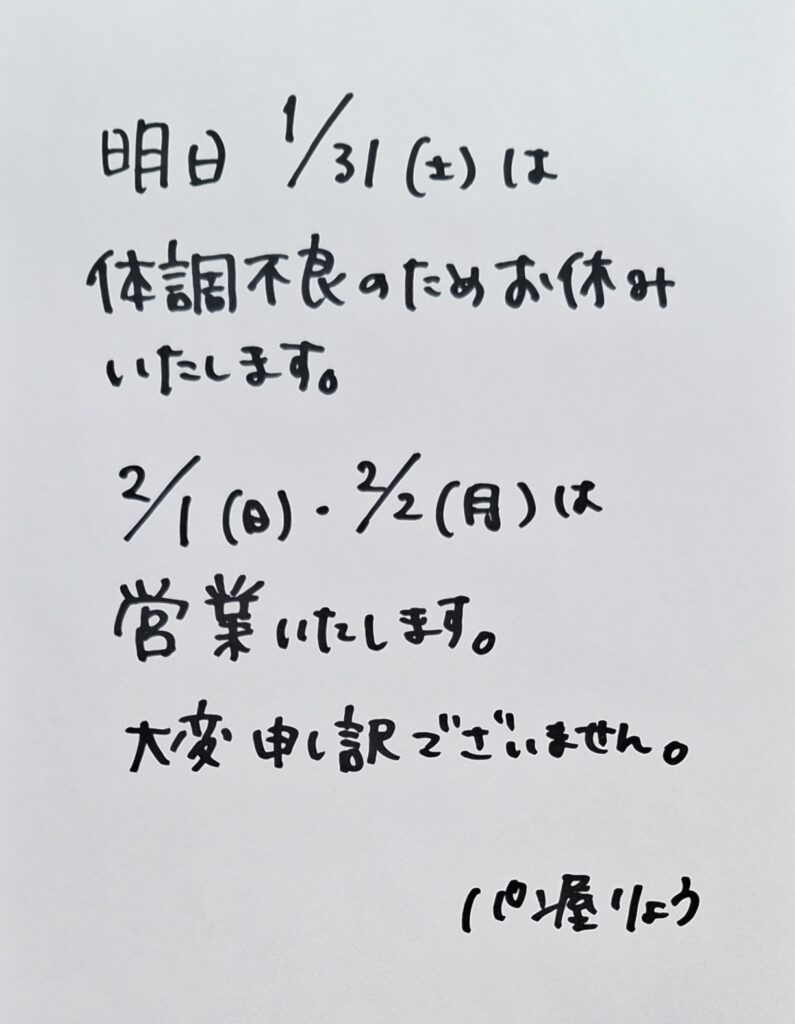 明日 1/31(土)は
体調不良のためお休み
いたします。
2/1(日)・2/2(月)は
営業いたします。
大変申し訳でございません。
パン屋りょう